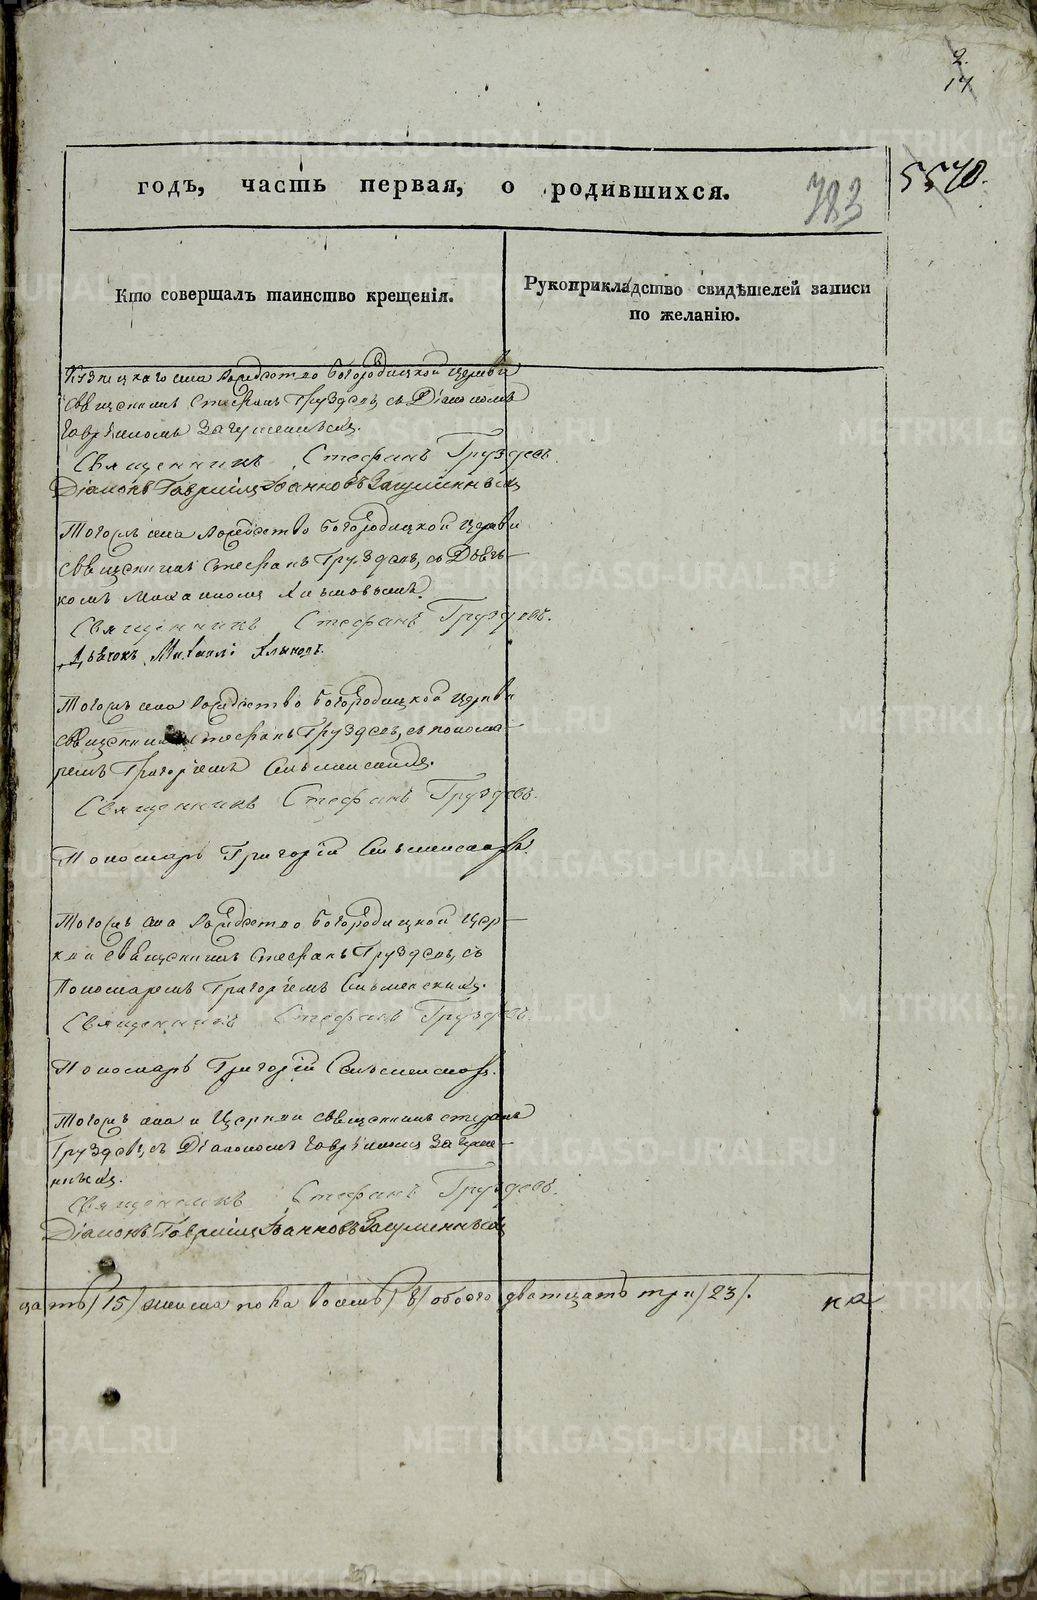 2.
14
5570.
годъ, часть первая, о родившихся.
783
Кто совершалъ таинство крещенія.
Рукоприкладство свидѣтелей записи
по желанію.
села Рождество Богородицкой церкви
священникъ Стефанъ Груздевъ, съ Діакономъ
Гавріиломъ
Священникъ Стефанъ Груздевъ.
Діаконъ Гавріилъ
Тогожъ села Рождество Богородицкой церкви
священникъ Стефанъ Груздевъ, съ Дьячь-
комъ Михаиломъ
Священникъ Стефанъ Груздевъ.
Дьячокъ Михаилъ
Тогожъ села Рождество Богородицкой церкви
священникъ Стефанъ Груздевъ, съ понома-
ремъ Григоріемъ
Священникъ Стефанъ Груздевъ.
Пономарь Григорій
Тогожъ села Рождество Богородицкой цер-
кви священникъ Стефанъ Груздевъ, съ
Пономаремъ Григоріемъ
Священникъ Стефанъ Груздевъ.
Пономарь Григорій
Тогожъ села и Церкви священникъ Стефанъ
Груздевъ, съ Діакономъ Гавріиломъ
Священникъ Стефанъ Груздевъ.
Діаконъ Гавріилъ
цать /15/ женска пола восемь /8/ обоего дватцать три /23/.
ка
METRIKI.GASO-URAL.RU